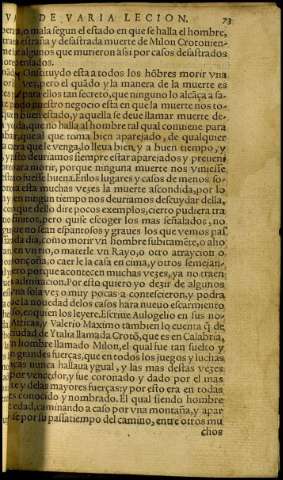 DE VARIA LECION. 73
o mala segun el estado en que se halla el hombre,
estraña y desastrada muerte de Milon Crotonien-
algunos que murieron assi por casos desastrados
y no pensados.
Constituydo esta a todos los hõbres morir vna
vez, pero el quãdo y la manera de la muerte es
para ellos tan secreto, que ninguno lo alcãça a sa-
todo nuestro negocio esta en que la muerte nos to-
buen estado, y aquella se deue llamar muerte de-
que no halla al hombre tal qual conuiene para
qual al que toma bien aparejado, de qualquier
que le venga, lo lleua bien, y a buen tiempo, y
esto deuriamos siempre estar aparejados y preueni
para morir, porque ninguna muerte nos viniesse
fuesse buena. En los lugares y casos de menos so-
esta muchas vezes la muerte ascondida, por lo
en ningun tiempo nos deuriamos descuydar della,
que dello dare pocos exemplos, cierto pudiera tra
infinitos, pero quise escoger los mas señalados, o
que no sean espantosos y graues los que vemos pas
cada dia, como morir vn hombre subitamẽte, o aho
en vn rio, o matarle vn Rayo, o otro atraycion o
o caerle la casa encima, y otros semejan-
pero porque acontecen muchas vezes, ya no traen
admiracion. Por esto quiero yo dezir de algunos
sola vez, o muy pocas acontescieron, y podra
la nouedad delos casos hara nueuo escarmiento
en quien los leyere. Escriue Aulogelio en sus no-
Atticas, y Valerio Maximo tambien lo cuenta q̃ de
ciudad de Ytalia llamada Crotõ, que es en Calabria,
vn hombre llamado Milon, el qual fue tan suelto y
grandes fuerças, que en todos los juegos y luchas
nunca hallaua ygual, y las mas destas vezes
por vencedor, y fue coronado y dado por el mas
y delas mayores fuerças: y por esto era en todas
conocido y nombrado. El qual siendo hombre
edad, caminando a caso por vna montaña, y apar
se por su passatiempo del camino, entre otros mu
chos